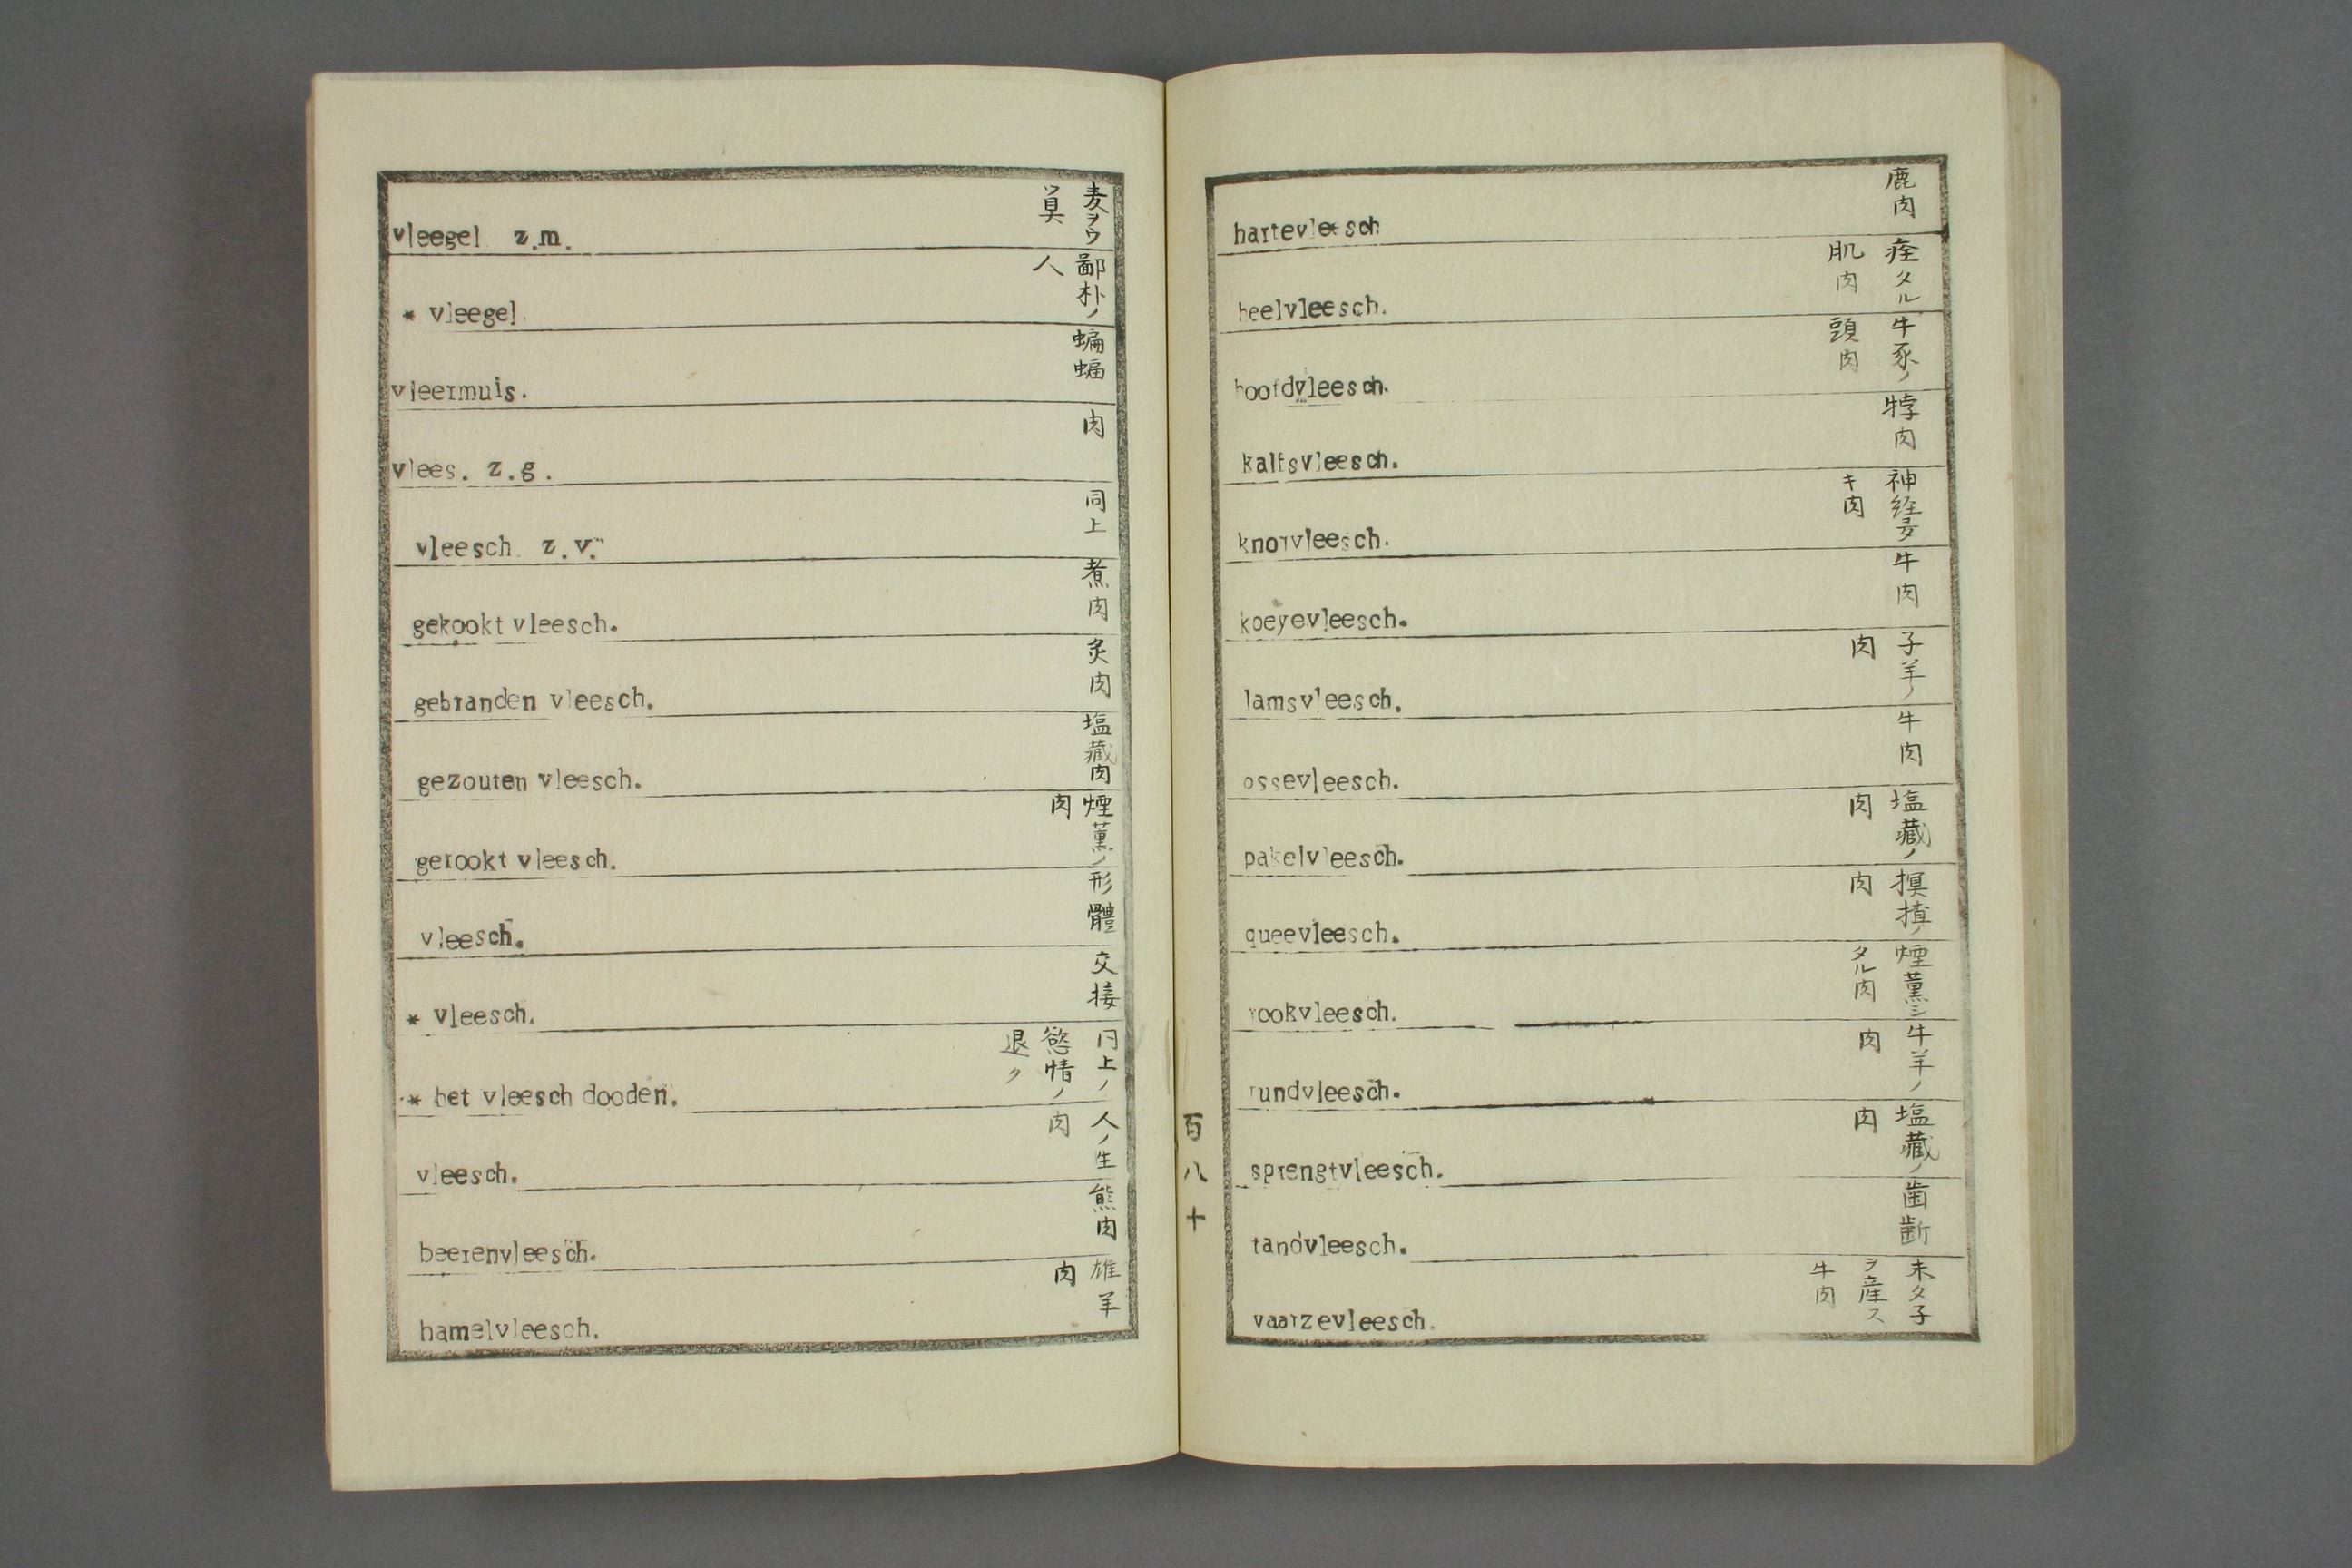 vleegel z.m.
麦ヲウ
ツ具
* vleegel.
鄙朴ノ
人
vleermuis.
蝙蝠
vlees. z.g.
肉
vleesch. z.v.
同上
gekookt vleesch.
煮肉
gebranden vleesch.
炙肉
gezouten vleesch.
塩藏肉
gerookt vleesch.
煙薫ノ
肉
vleesch.
形體
* vleesch.
交接
* het vleesch dooden.
同上ノ
慾情ノ
退ク
vleesch.
人ノ生
肉
beerenvleesch.
熊肉
hamelvleesch.
雄羊
肉
百八十
hartevleesch
鹿肉
heelvleesch.
痊タル
肌肉
hoofdvleesch.
牛豕ノ
頭肉
kalfsvleesch.
牸肉
knorvleesch.
神経多
キ肉
koeyevleesch.
牛肉
lamsvleesch.
子羊ノ
肉
ossevleesch.
牛肉
pakelvleesch.
塩藏ノ
肉
queevleesch.
肉
rookvleesch.
煙薫シ
タル肉
rundvleesch.
牛羊ノ
肉
sprengtvleesch.
塩藏ノ
肉
tandvleesch.
歯齗
vaarzevleesch.
未タ子
ヲ産ス
牛肉